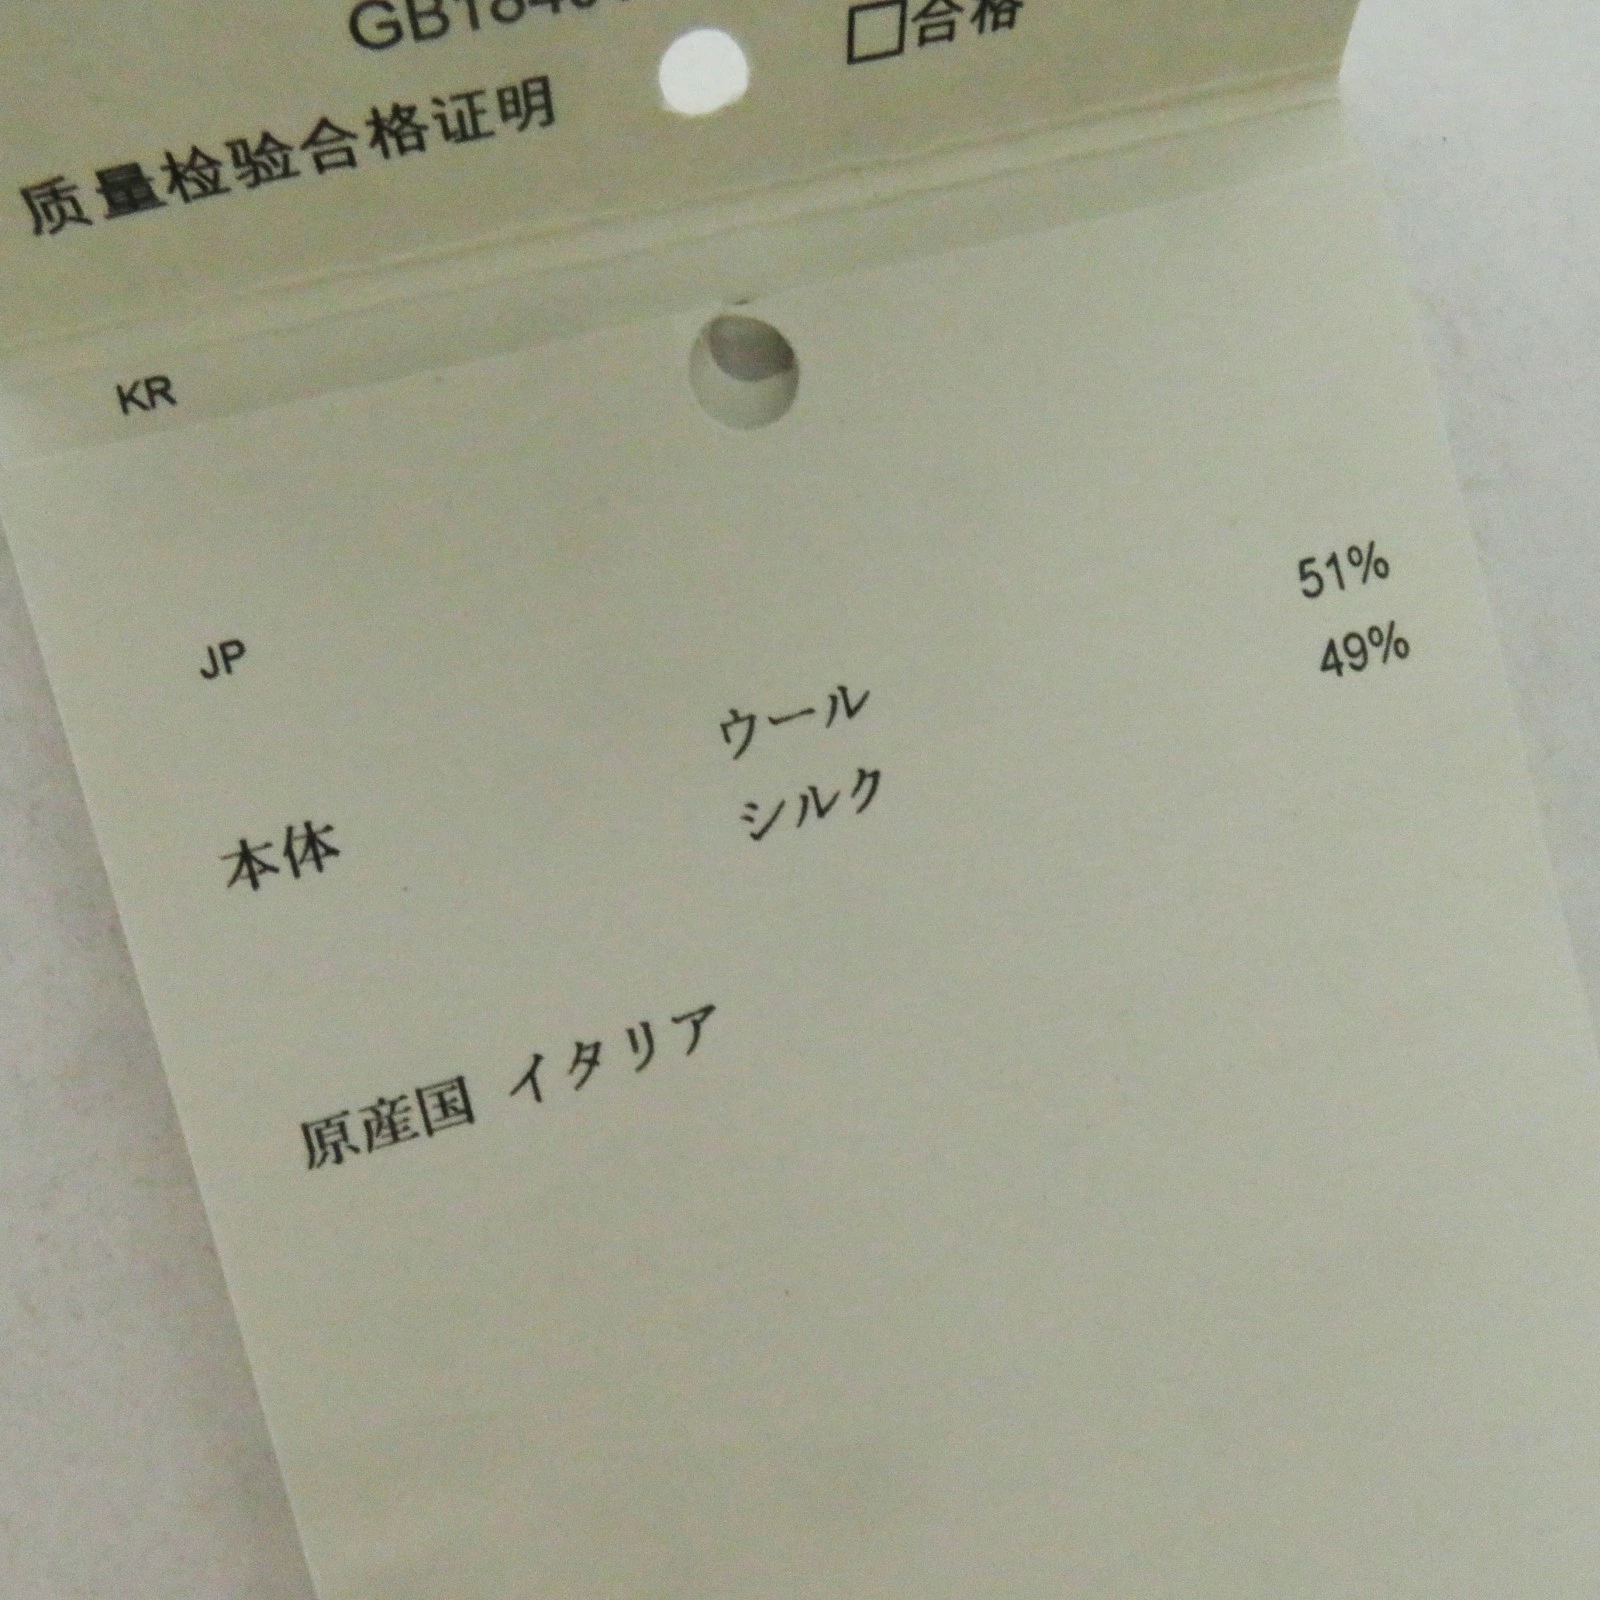 □合格
质量检验合格证明
KR
JP
本体 ウール 51%
シルク 49%
原産国 イタリア